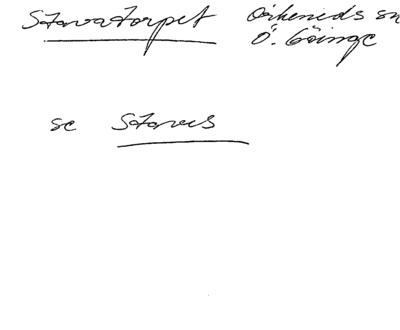 Stavatorpet Örkeneds sn
Ö. Göinge
se Stavs